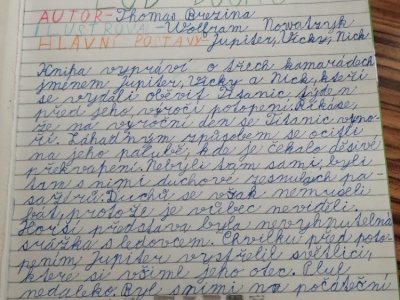 AUTOR-Thomas Brezina
ILUSTROVAL Wolfram Nowatzyk
HLAVNÍ POSTAVY Jupiter, Vicky, Nick
Kniha vypráví o třech kamarádech
jménem Jupiter, Vicky a Nick, kteří
se vydali objevit Titanic týden
před jeho výročí potopení. Říká se,
že na výroční den se Titanic vyno-
ří. Záhadným způsobem se ocitli
na jeho palubě, kde je čekalo děsivé
překvapení. Nebyli tam sami, byli
tam s nimi duchové zesnulých pa-
sažírů. Duchů se však nemuseli
bát, protože je vůbec neviděli.
Horší představa byla nevyhnutelná
srážka s ledovcem. Chvilku před poto-
pením Jupiter vystřelil světlici,
které si všiml jeho otec. Plul
nedaleko. Byl s nimi na počáteční